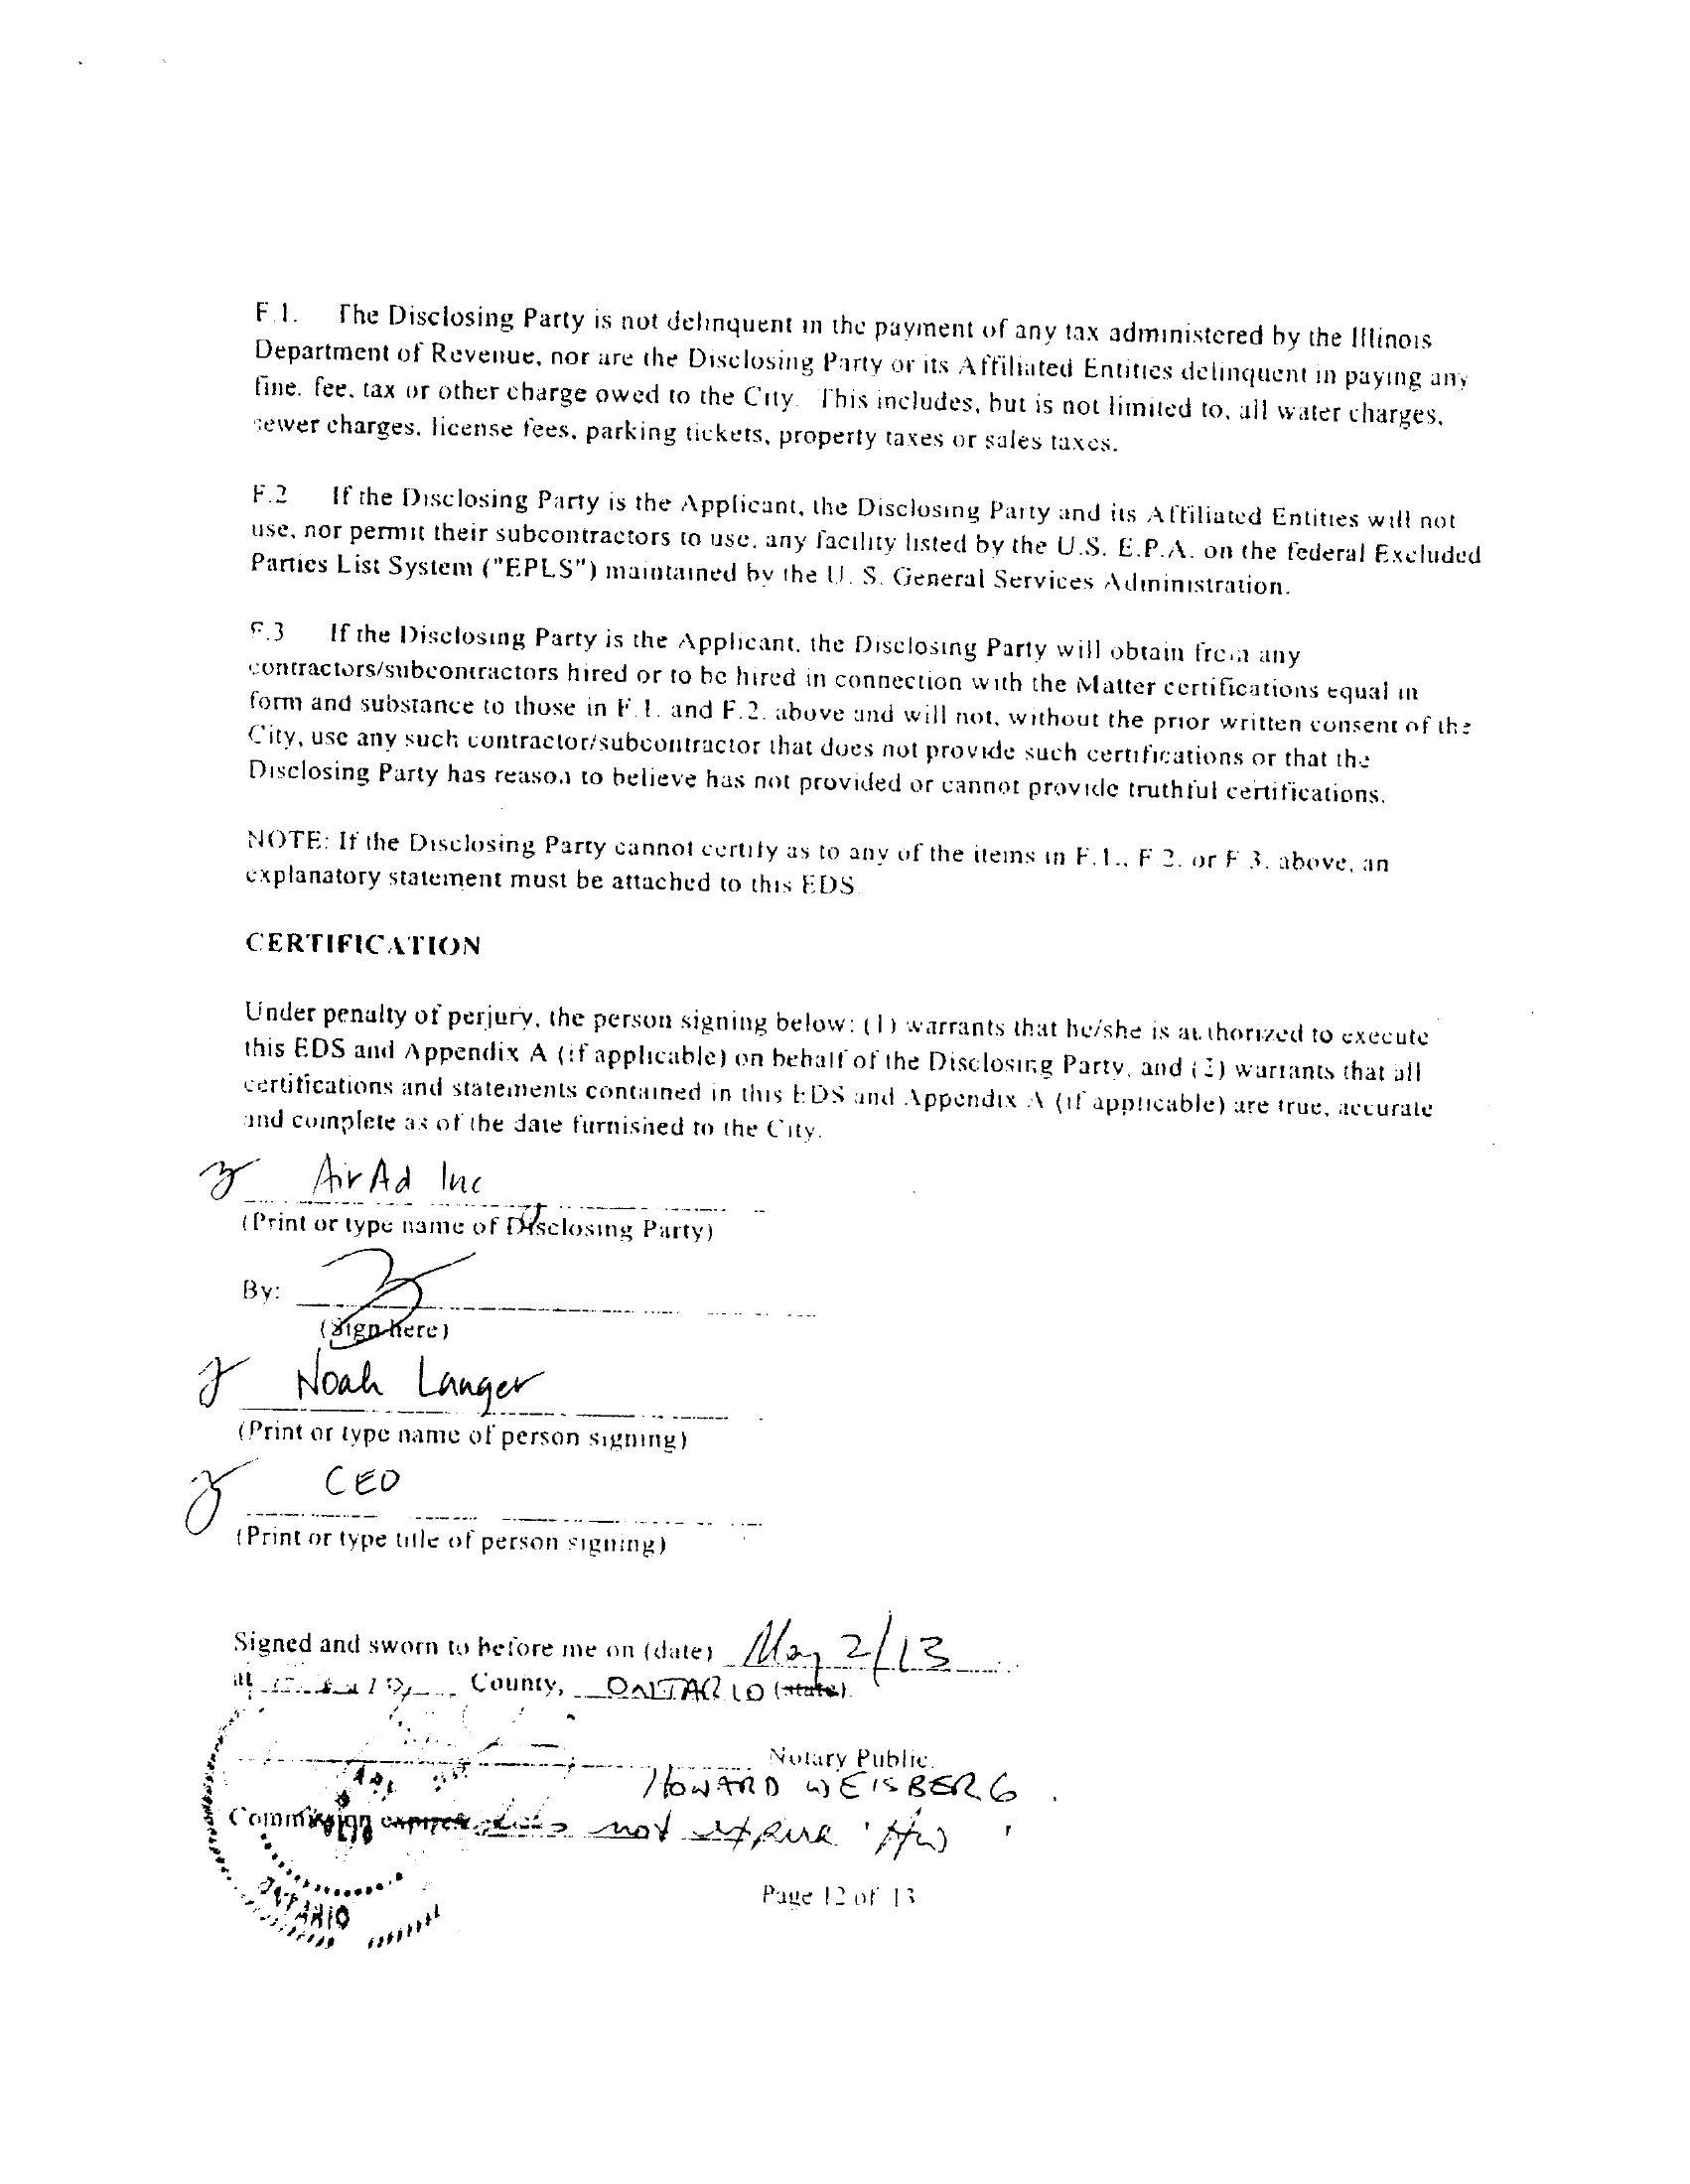 F.1. The Disclosing Party is not delinquent in the payment of any tax administered by the Illinois
Department of Revenue, nor are the Disclosing Party or its Affiliated Entities delinquent in paying any
fine, fee, tax or other charge owed to the City. This includes, but is not limited to, all water charges,
sewer charges, license fees, parking tickets, property taxes or sales taxes.
F.2 If the Disclosing Party is the Applicant, the Disclosing Party and its Affiliated Entities will not
use, nor permit their subcontractors to use, any facility listed by the U.S. E.P.A. on the federal Excluded
Parties List System ("EPLS") maintained by the U. S. General Services Administration.
F.3 If the Disclosing Party is the Applicant, the Disclosing Party will obtain from any
contractors/subcontractors hired or to be hired in connection with the Matter certifications equal in
form and substance to those in F.1. and F.2. above and will not, without the prior written consent of the
City, use any such contractor/subcontractor that does not provide such certifications or that the
Disclosing Party has reason to believe has not provided or cannot provide truthful certifications.
NOTE: If the Disclosing Party cannot certify as to any of the items in F.1., F.2. or F.3. above, an
explanatory statement must be attached to this EDS.
CERTIFICATION
Under penalty of perjury, the person signing below: (1) warrants that he/she is authorized to execute
this EDS and Appendix A (if applicable) on behalf of the Disclosing Party, and (2) warrants that all
certifications and statements contained in this EDS and Appendix A (if applicable) are true, accurate
and complete as of the date furnished to the City.
AirAd Inc
(Print or type name of Disclosing Party)
By:
(Sign here)
Noah Langer
(Print or type name of person signing)
CEO
(Print or type title of person signing)
Signed and sworn to before me on (date) May 2/13
at County, ONTARIO (state).
Notary Public.
HOWARD WEISBERG.
Commission expires does not expire 'HW'
ONTARIO
Page 12 of 13